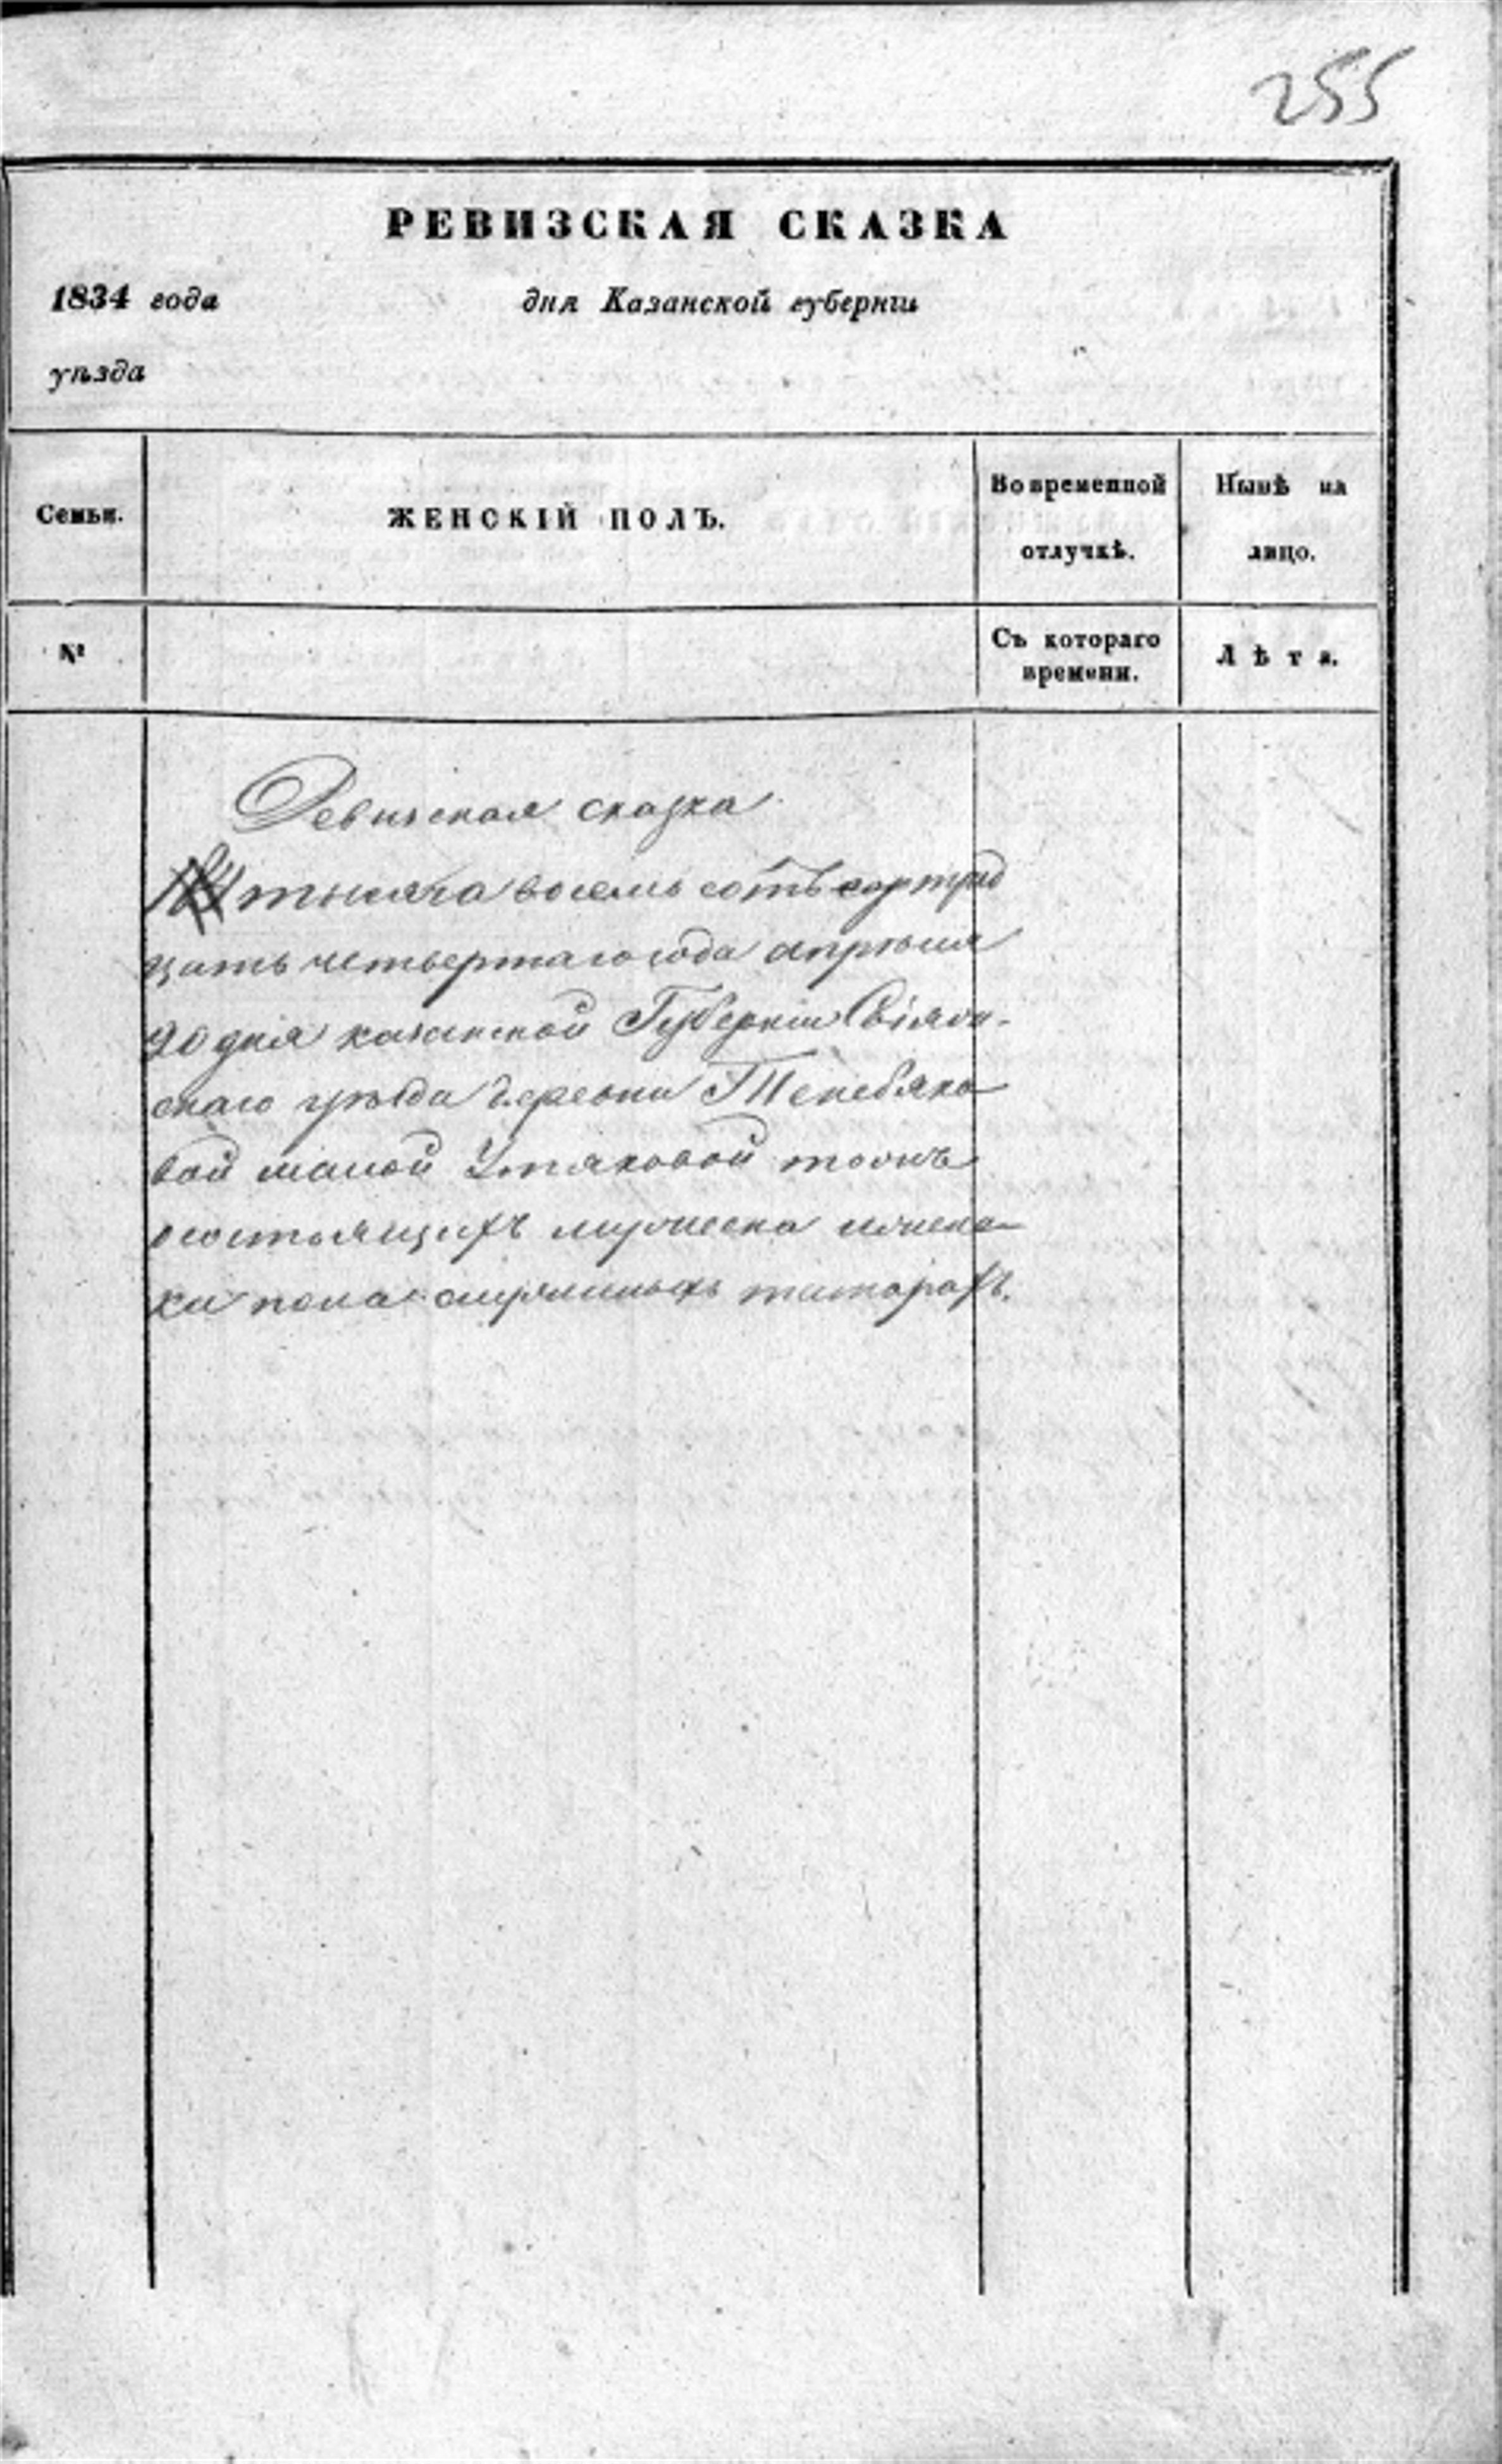 255
РЕВИЗСКАЯ СКАЗКА
1834 года дня Казанской губернiи
уѣзда
Семьи. ЖЕНСКIЙ ПОЛЪ. Во временной отлучкѣ. Нынѣ на лицо.
№ Съ котораго времени. Лѣта.
Ревизская сказка
тысяча восемь сотъ тритд
цать четвертаго года апреля
20 дня казанской Губернiи Свiяж-
скаго уѣзда деревни
вой малой Утяковой
состоящихъ мужеска иженска
ки пола татарахъ.